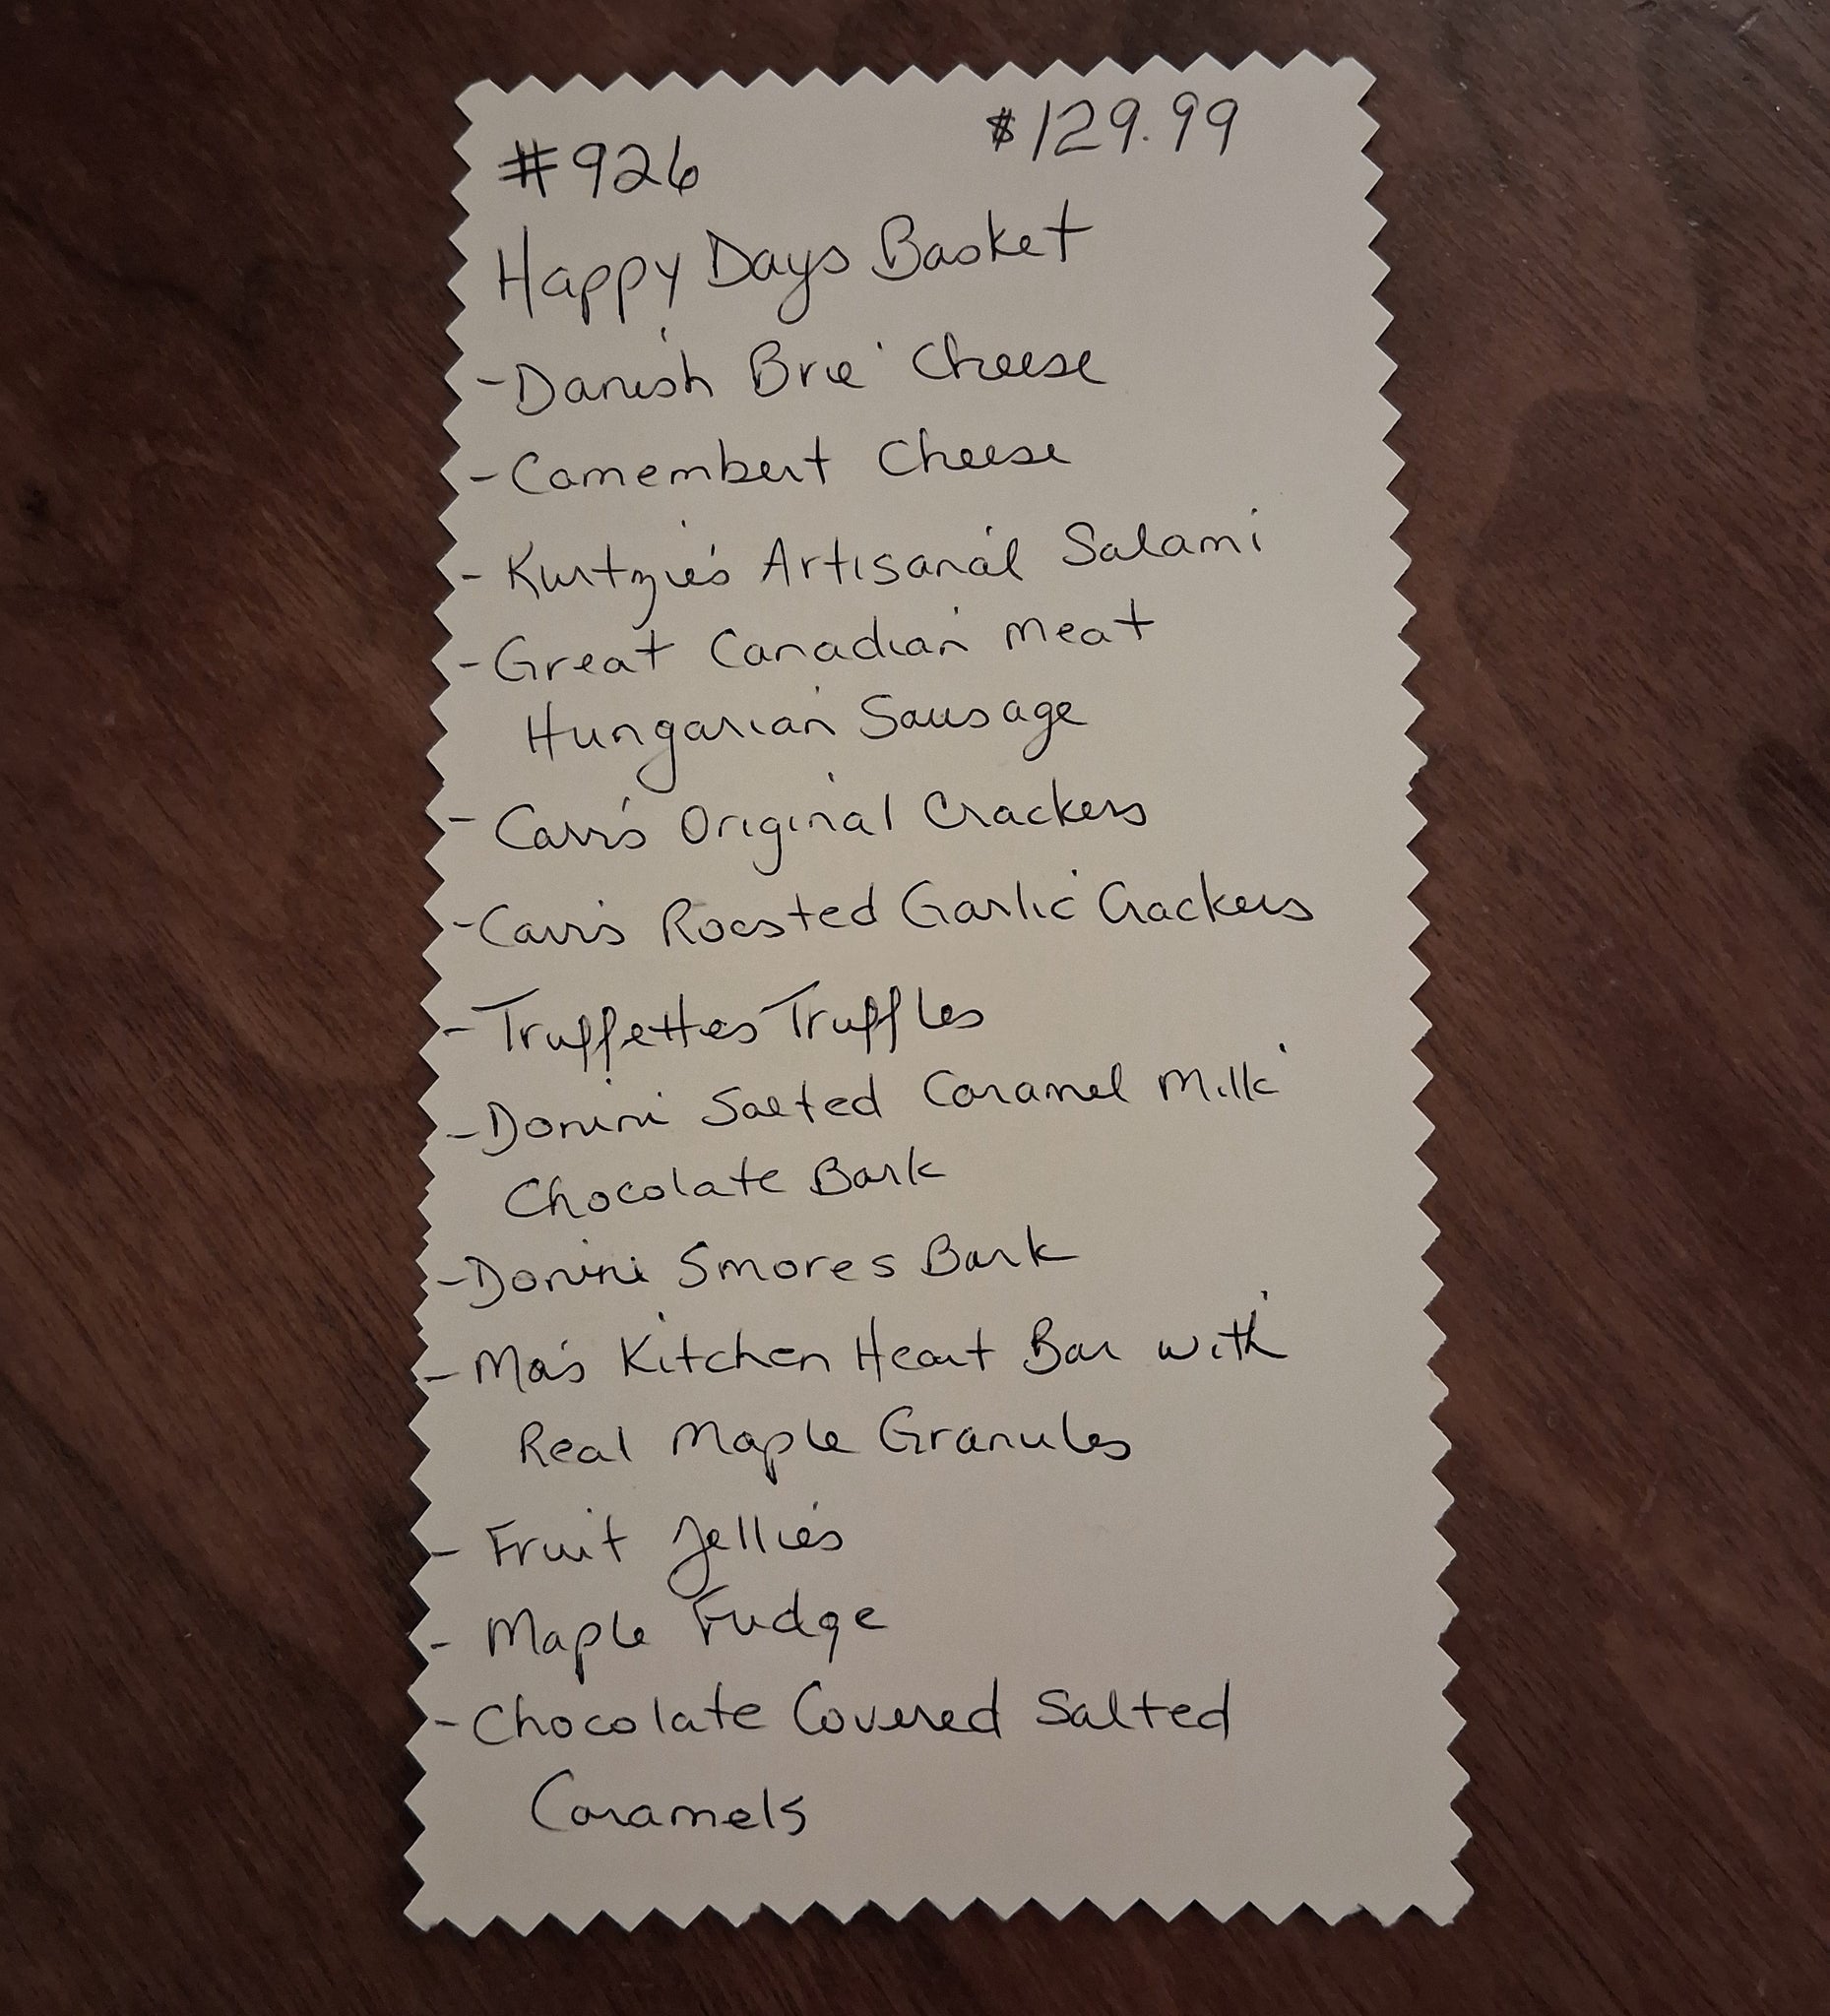 #926 $129.99
Happy Days Basket
- Danish Brie Cheese
- Camembert Cheese
- Kurtzie's Artisanal Salami
- Great Canadian Meat
Hungarian Sausage
- Carr's Original Crackers
- Carr's Roasted Garlic Crackers
- Truffettes Truffles
- Donini Salted Caramel Milk
Chocolate Bark
- Donini Smores Bark
- Ma's Kitchen Heart Bar with
Real Maple Granules
- Fruit Jellies
- Maple Fudge
- Chocolate Covered Salted
Caramels